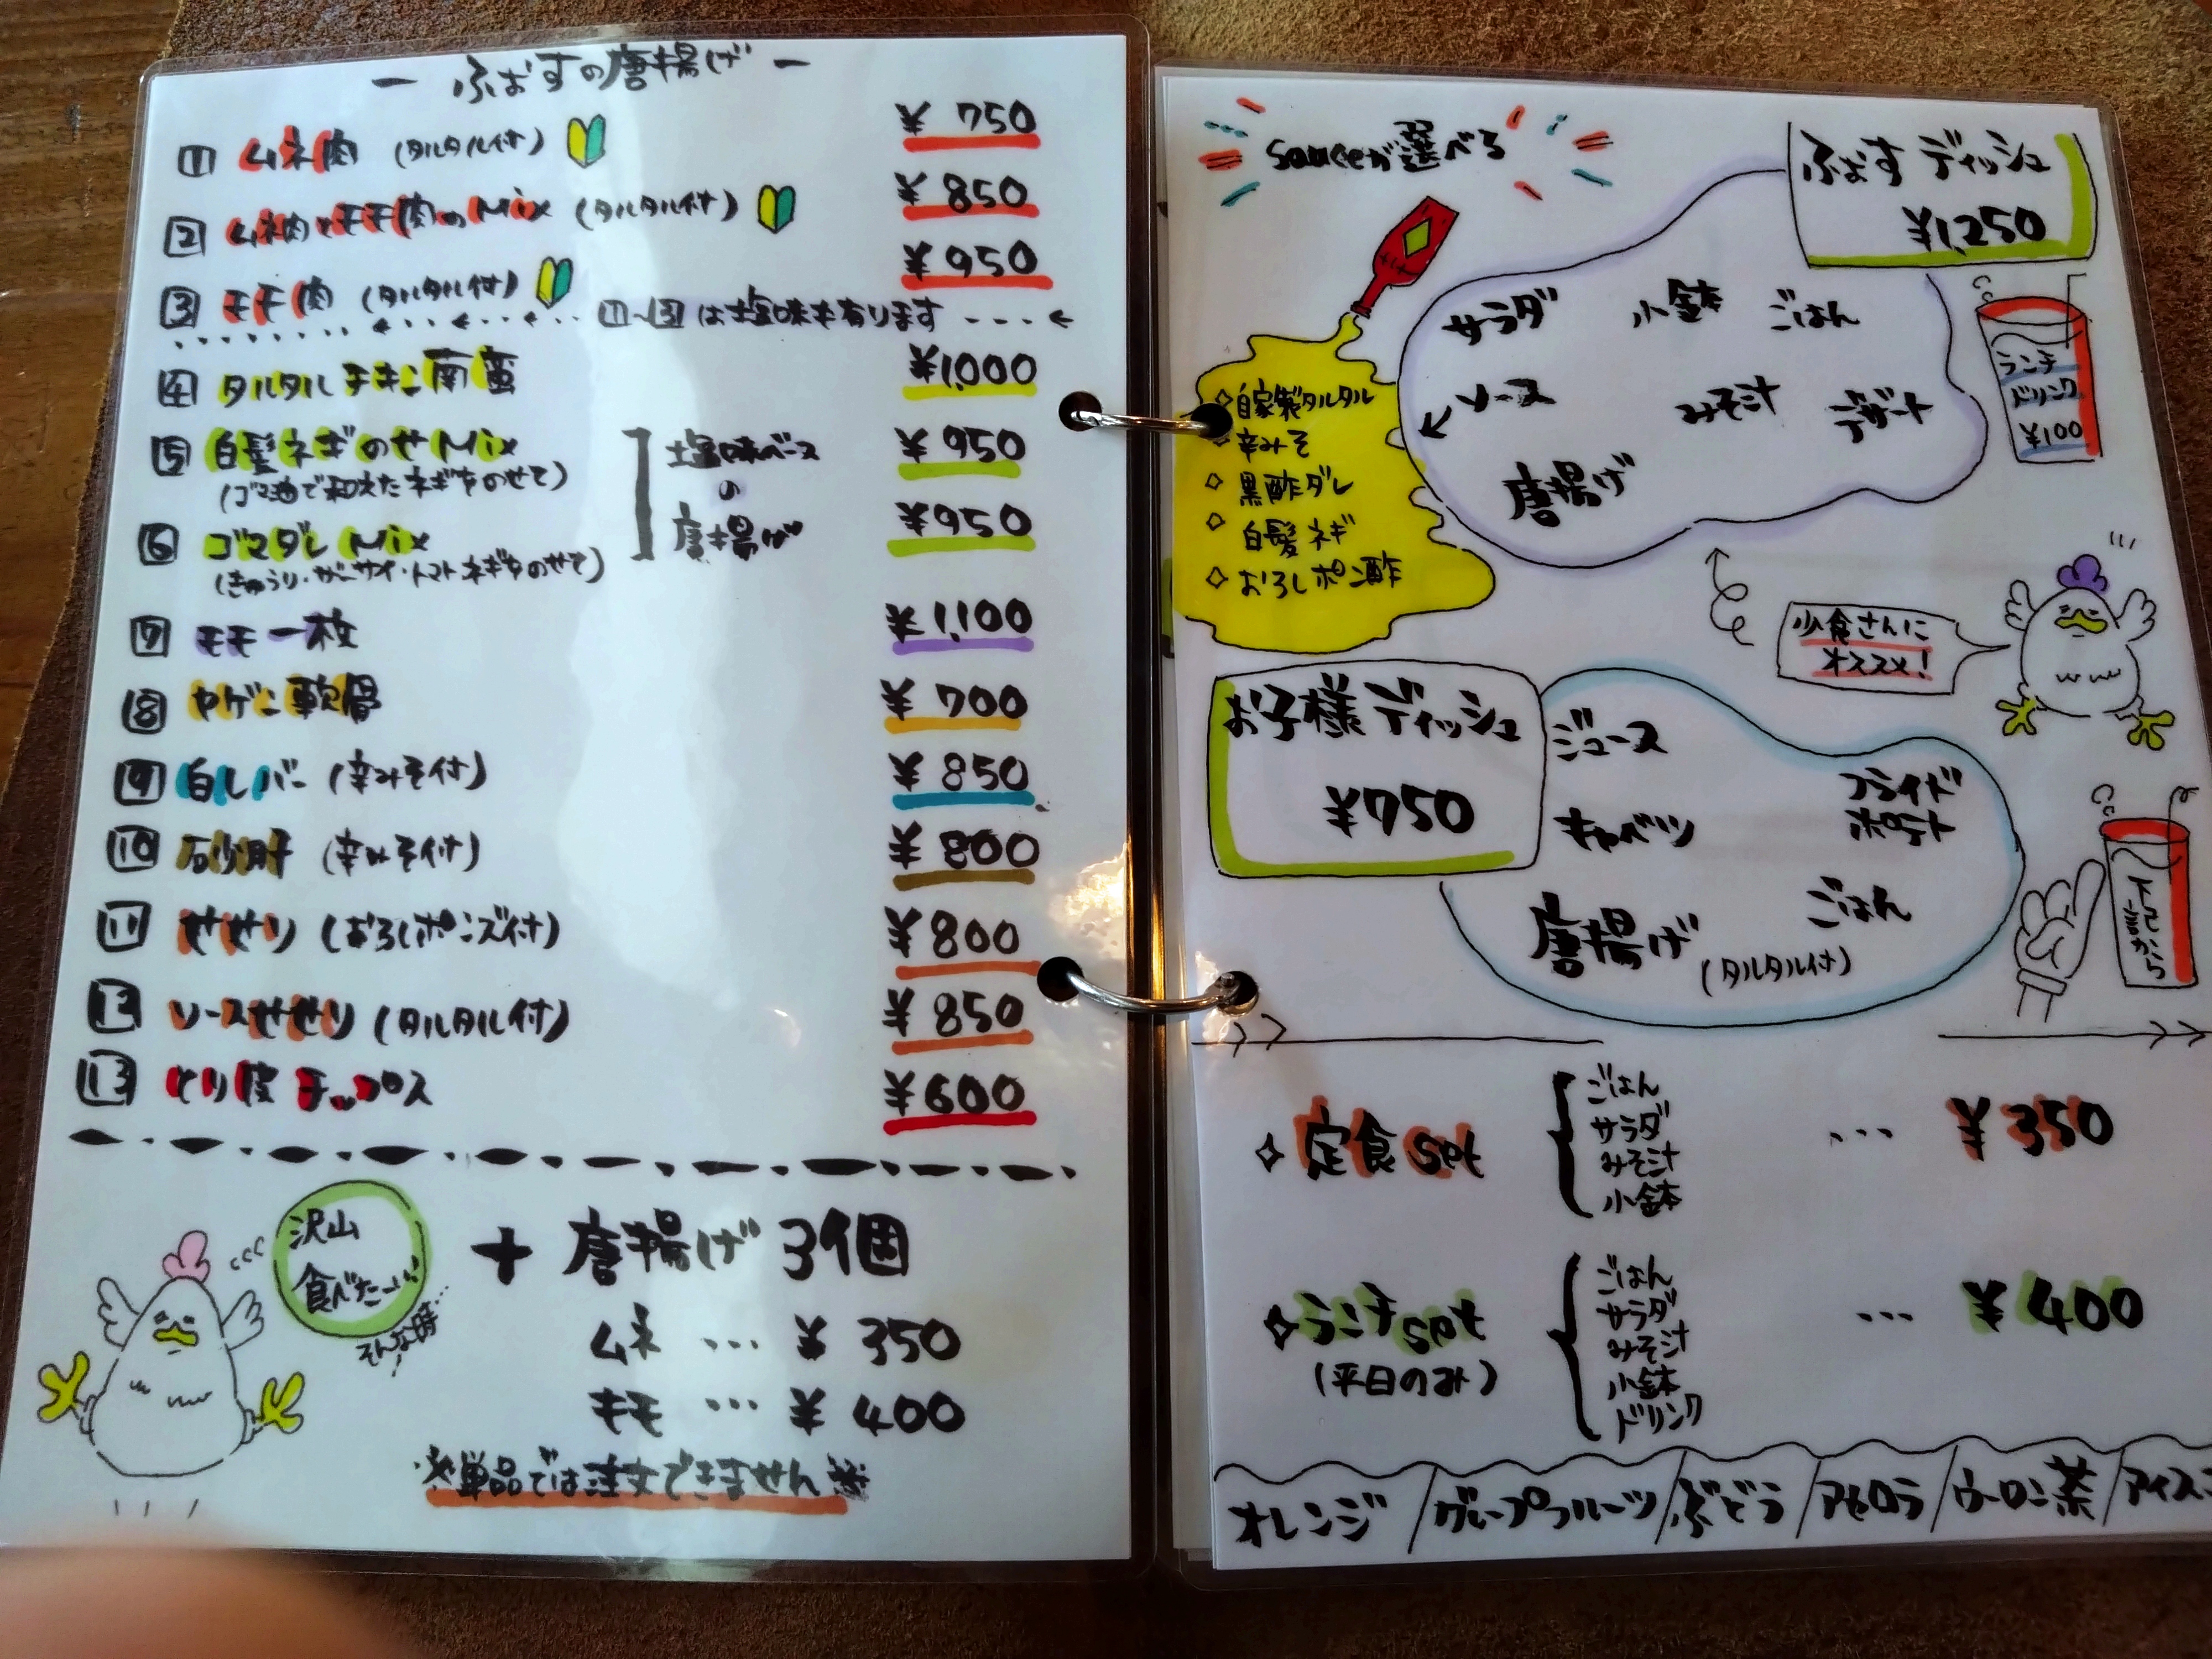 ー ふぉすの唐揚げ ー
1 ムネ肉 (タルタル付) ¥750
2 ムネ肉とモモ肉のMix (タルタル付) ¥850
3 モモ肉 (タルタル付) ¥950
1~3は塩味も有ります
4 タルタルチキン南蛮 ¥1,000
5 白髪ネギのせMix ¥950
(ゴマ油で和えたネギをのせて)
6 ゴマダレMix ¥950
(きゅうり・ザーサイ・トマト ネギをのせて)
塩味ベース
の
唐揚げ
7 モモ一枚 ¥1,100
8 ヤゲン軟骨 ¥700
9 白レバー (辛みそ付) ¥850
10 砂肝 (辛みそ付) ¥800
11 せせり (おろしポンズ付) ¥800
12 ソースせせり (タルタル付) ¥850
13 とり皮チップス ¥600
沢山
食べたーい!
そんな時…!
+ 唐揚げ 3個
ムネ … ¥350
モモ … ¥400
※単品では注文できません※
sauceが選べる
ふぉすディッシュ
¥1,250
サラダ 小鉢 ごはん
ソース みそ汁 デザート
唐揚げ
ランチ
ドリンク
¥100
◇自家製タルタル
◇辛みそ
◇黒酢ダレ
◇白髪ネギ
◇おろしポン酢
少食さんに
オススメ!
お子様ディッシュ
¥750
ジュース
キャベツ
フライド
ポテト
唐揚げ
(タルタル付)
ごはん
下記から
◇定食set
ごはん
サラダ
みそ汁
小鉢
… ¥350
◇ランチset
(平日のみ)
ごはん
サラダ
みそ汁
小鉢
ドリンク
… ¥400
オレンジ/グレープフルーツ/ぶどう/アセロラ/ウーロン茶/アイスコ